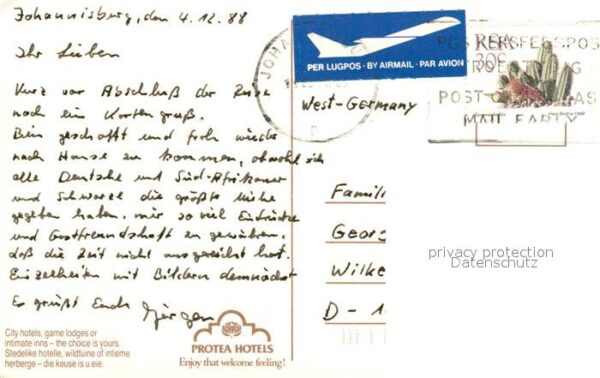 Johannisburg, den 4.12.88
Ihr Lieben
Kurz vor Abschluß der Reise
noch ein Kartengruß.
Bin geschafft und froh wieder
nach Hause zu kommen, obwohl sich
alle Deutsche und Süd-Afrikaner
und Schwarze die größte Mühe
gegeben haben, mir so viel Eindrücke
und Gastfreundschaft zu gewähren,
daß die Zeit nicht ausgereicht hat.
Einzelheiten mit Bildern demnächst
Es grüßt Euch Jürgen
City hotels, game lodges or
intimate inns – the choice is yours.
Stedelike hotelle, wildtuine of intieme
herberge – die keuse is u eie.
PROTEA HOTELS
Enjoy that welcome feeling!
PER LUGPOS · BY AIRMAIL · PAR AVION
JOHA
POS KERSFEESPOS
POST
AS
MAIL EARLY
West-Germany
Famili
Georg
Wilke
D - 1
privacy protection
Datenschutz